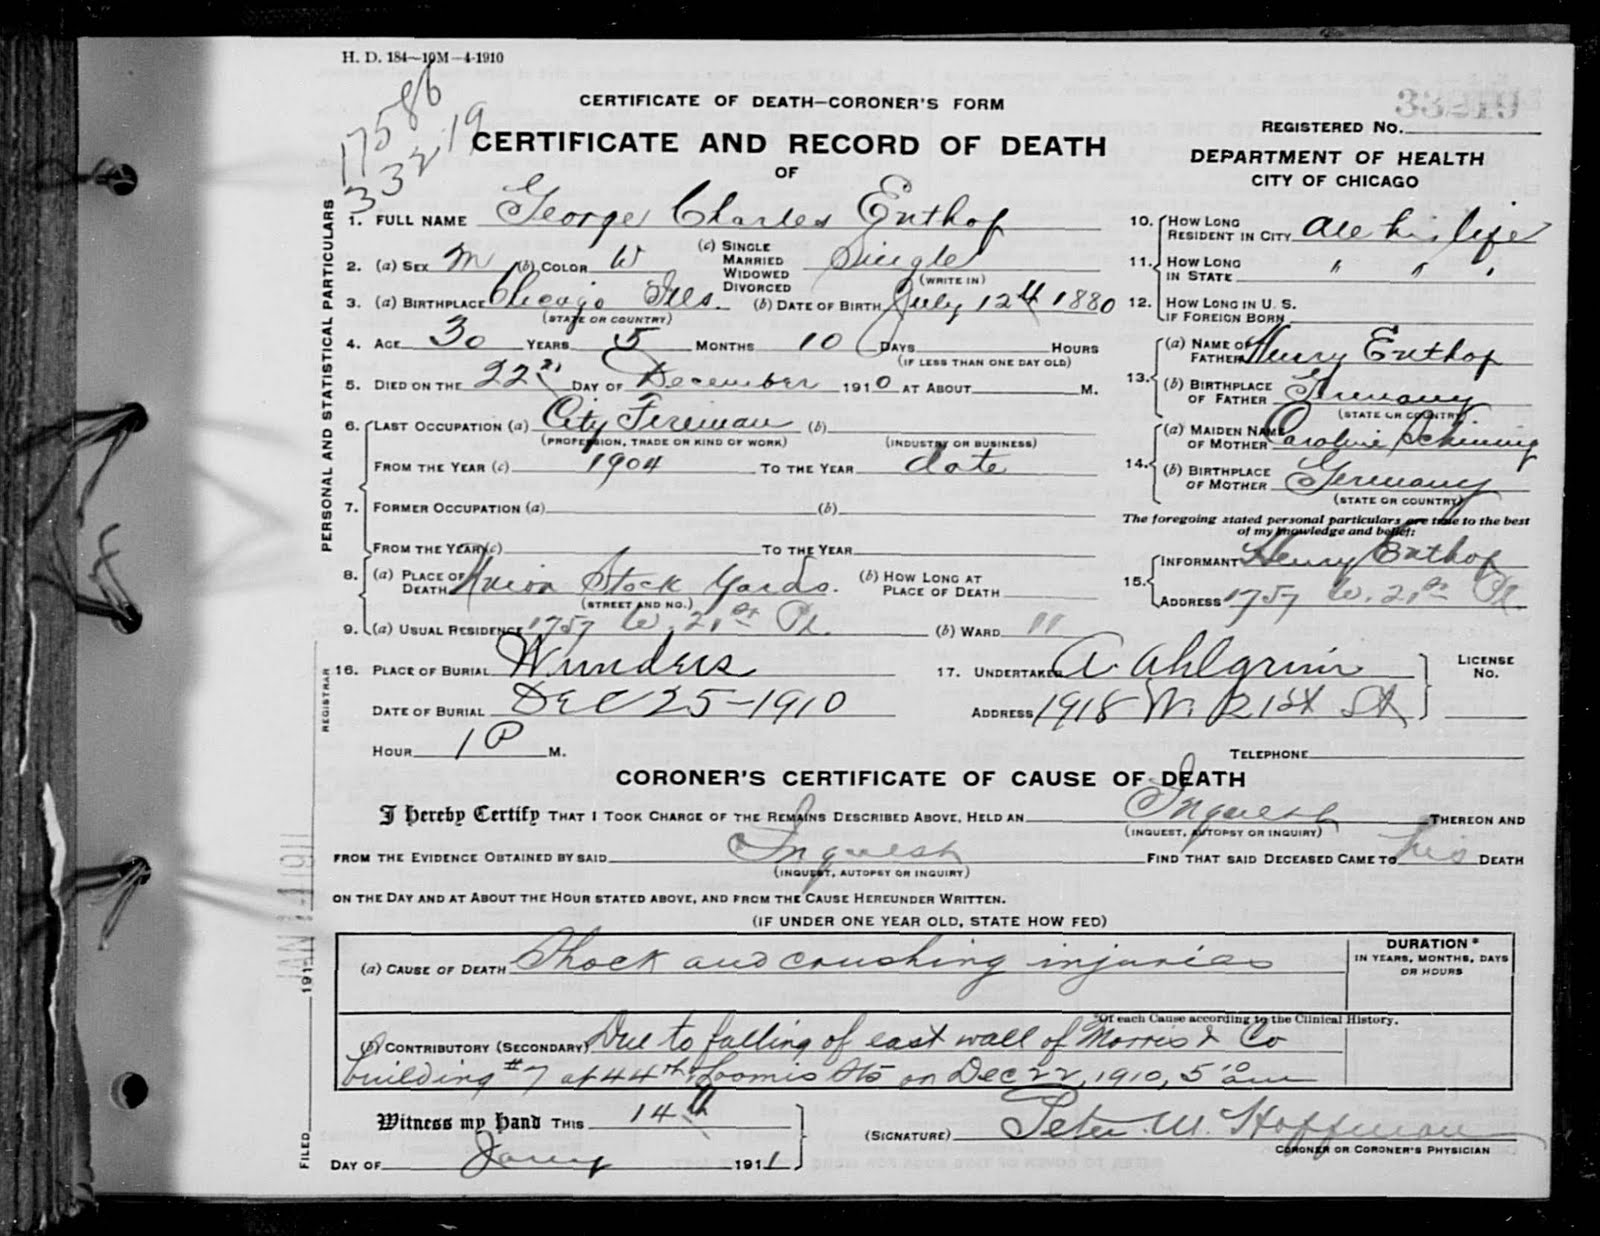 H. D. 184—10M—4-1910
17586
33219
33219
CERTIFICATE OF DEATH—CORONER'S FORM
REGISTERED NO.
CERTIFICATE AND RECORD OF DEATH
OF
DEPARTMENT OF HEALTH
CITY OF CHICAGO
PERSONAL AND STATISTICAL PARTICULARS
1. FULL NAME George Charles Enthof
2. (a) SEX M (b) COLOR W (c) SINGLE MARRIED WIDOWED DIVORCED Single
(WRITE IN)
3. (a) BIRTHPLACE Chicago Ills. (b) DATE OF BIRTH July 12th 1880
(STATE OR COUNTRY)
4. AGE 30 YEARS 5 MONTHS 10 DAYS HOURS
(IF LESS THAN ONE DAY OLD)
5. DIED ON THE 22nd DAY OF December 1910 AT ABOUT M.
6. LAST OCCUPATION (a) City Fireman (b)
(PROFESSION, TRADE OR KIND OF WORK) (INDUSTRY OR BUSINESS)
FROM THE YEAR (c) 1904 TO THE YEAR date
7. FORMER OCCUPATION (a) (b)
FROM THE YEAR (c) TO THE YEAR
8. (a) PLACE OF DEATH Union Stock Yards. (b) HOW LONG AT PLACE OF DEATH
(STREET AND NO.)
9. (a) USUAL RESIDENCE 1757 W. 21st Pl. (b) WARD 11
10. HOW LONG RESIDENT IN CITY All his life
11. HOW LONG IN STATE " " "
12. HOW LONG IN U. S. IF FOREIGN BORN
13. (a) NAME OF FATHER Henry Enthof
(b) BIRTHPLACE OF FATHER Germany
(STATE OR COUNTRY)
14. (a) MAIDEN NAME OF MOTHER Caroline Schinning
(b) BIRTHPLACE OF MOTHER Germany
(STATE OR COUNTRY)
The foregoing stated personal particulars are true to the best
of my knowledge and belief:
15. INFORMANT Henry Enthof
ADDRESS 1757 W. 21st Pl.
REGISTRAR
16. PLACE OF BURIAL Wunders
DATE OF BURIAL DEC 25-1910
HOUR 1 P M.
17. UNDERTAKER A. Ahlgrim
LICENSE NO.
ADDRESS 1918 W. 21st St
TELEPHONE
CORONER'S CERTIFICATE OF CAUSE OF DEATH
I hereby Certify THAT I TOOK CHARGE OF THE REMAINS DESCRIBED ABOVE, HELD AN Inquest THEREON AND
(INQUEST, AUTOPSY OR INQUIRY)
FROM THE EVIDENCE OBTAINED BY SAID Inquest FIND THAT SAID DECEASED CAME TO his DEATH
(INQUEST, AUTOPSY OR INQUIRY)
ON THE DAY AND AT ABOUT THE HOUR STATED ABOVE, AND FROM THE CAUSE HEREUNDER WRITTEN.
(IF UNDER ONE YEAR OLD, STATE HOW FED)
(a) CAUSE OF DEATH Shock and crushing injuries
DURATION*
IN YEARS, MONTHS, DAYS
OR HOURS
*Of each Cause according to the Clinical History.
(b) CONTRIBUTORY (SECONDARY) Due to falling of east wall of Morris & Co
building #7 at 44th & Loomis Sts on Dec 22, 1910, 5:10 am
Witness my Hand THIS 14th
DAY OF Jany 1911
(SIGNATURE) Peter M. Hoffman
CORONER OR CORONER'S PHYSICIAN
FILED 191